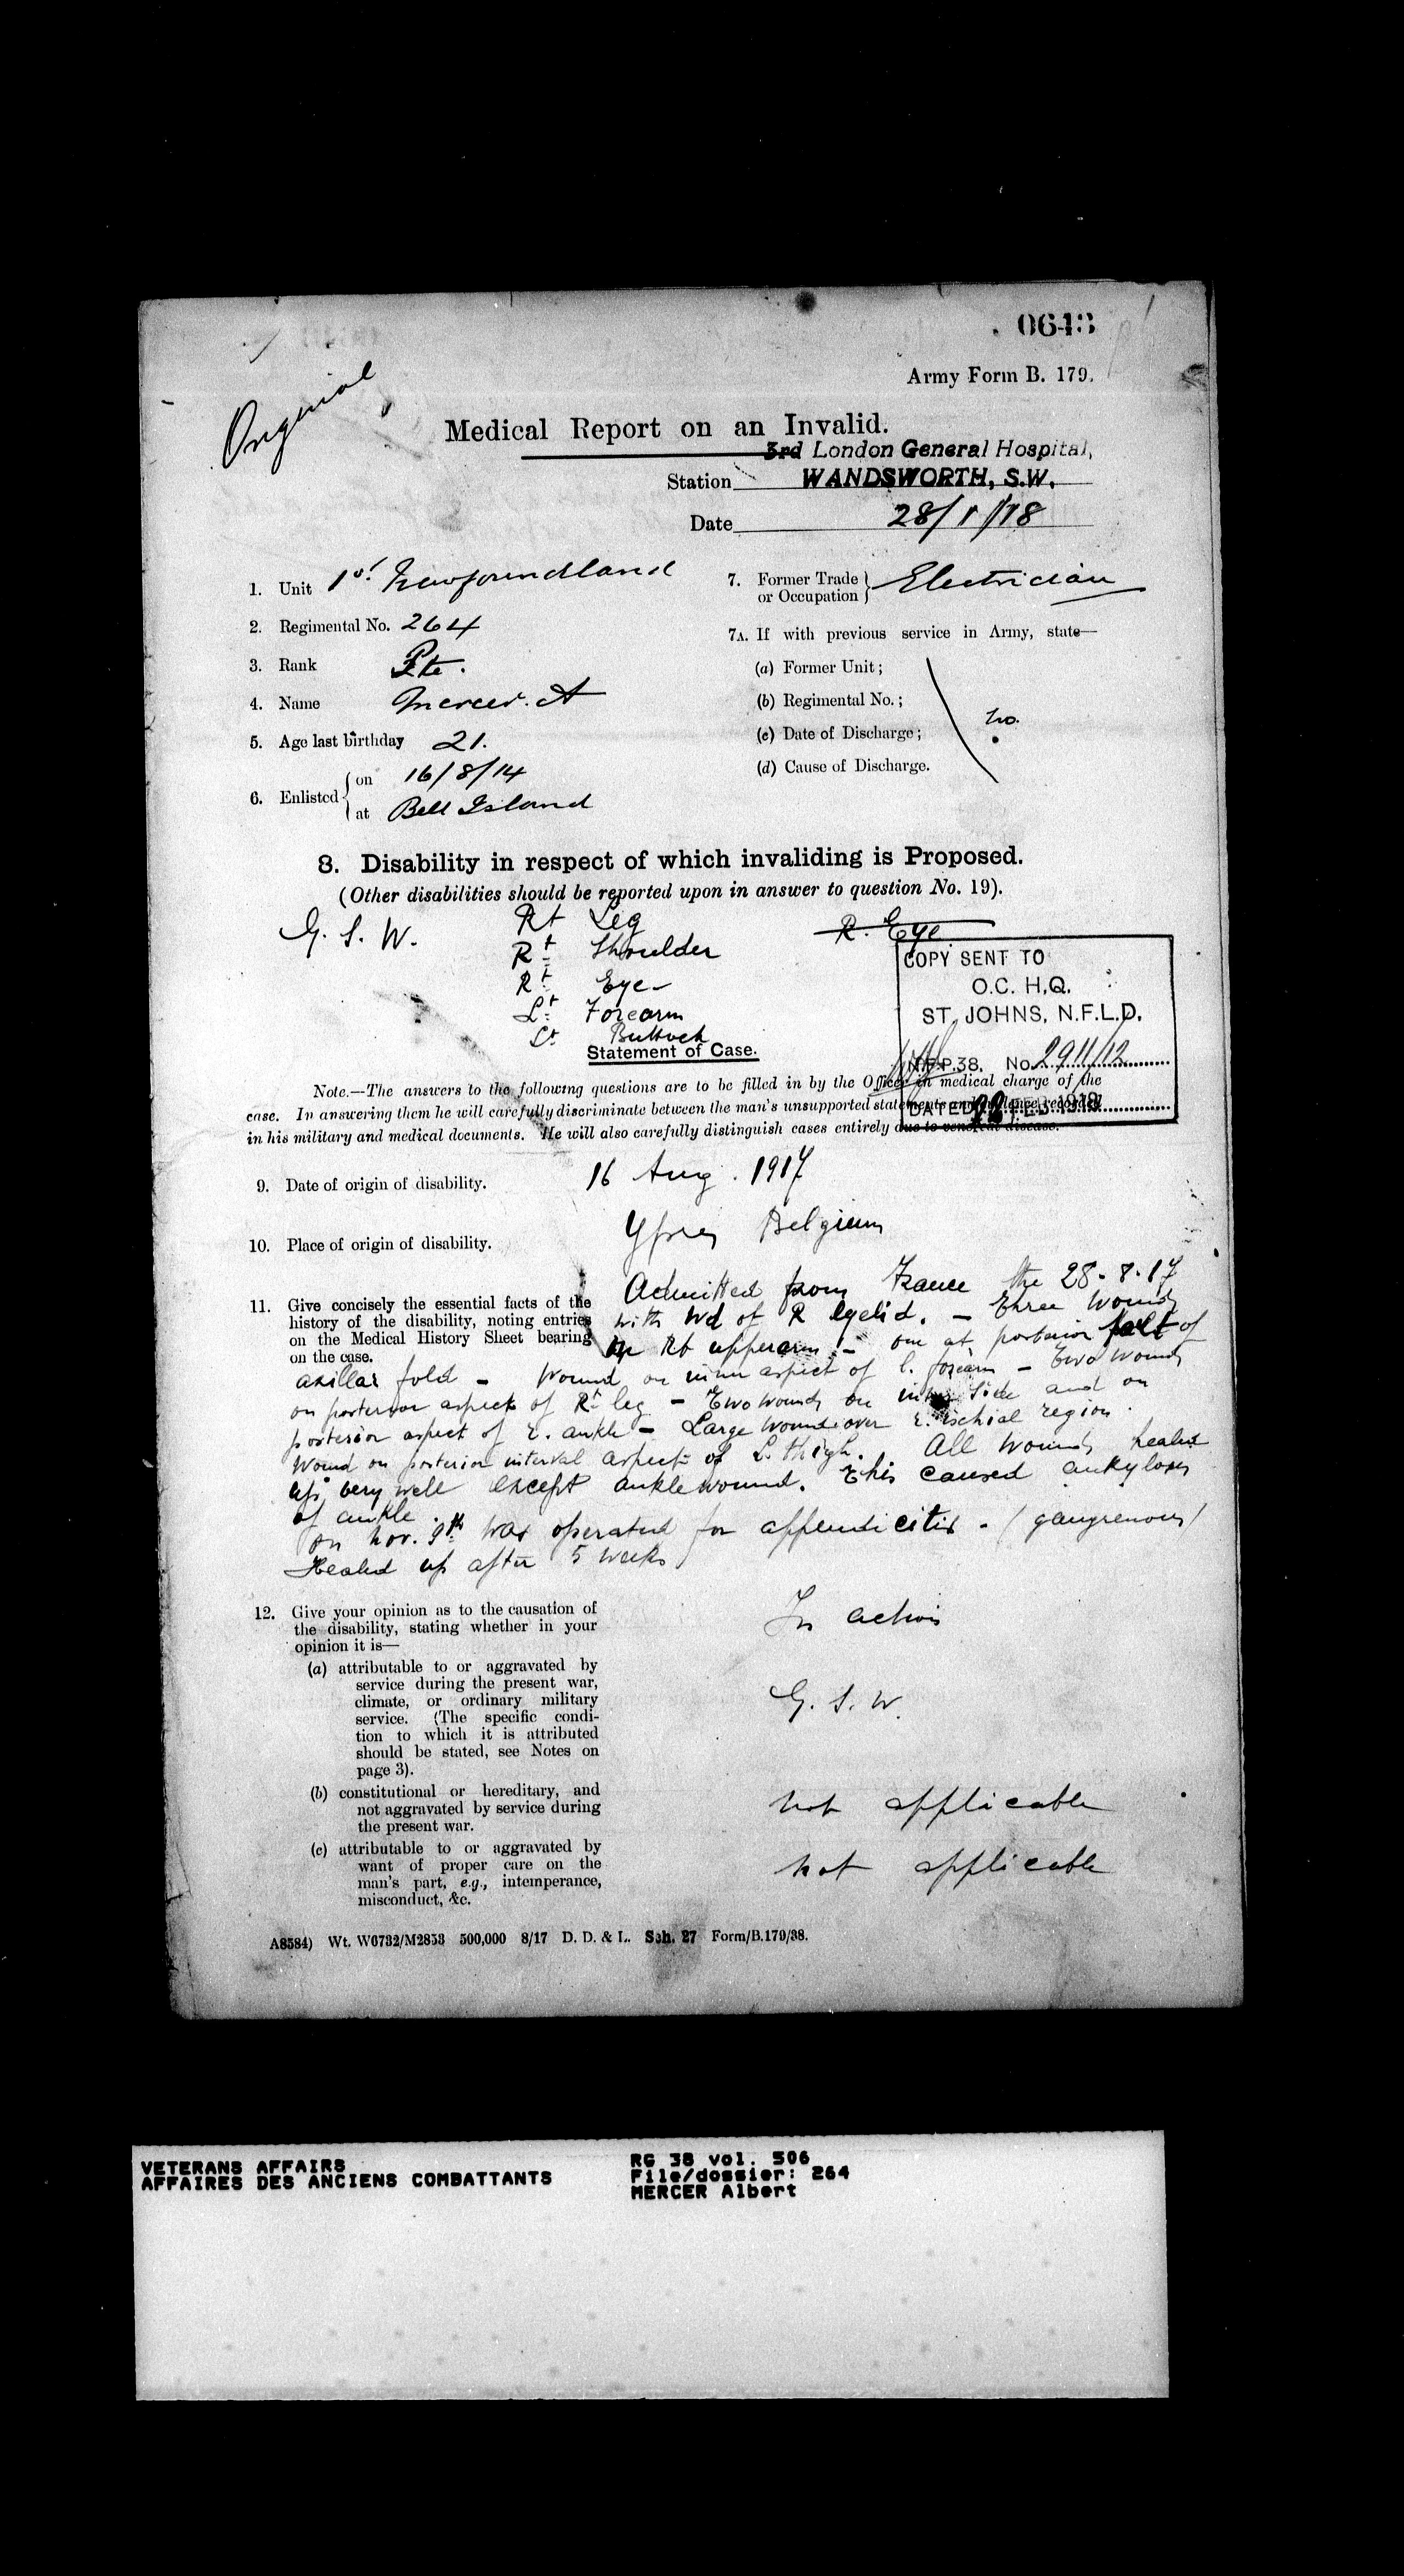 0643
Army Form B. 179.
Original
Medical Report on an Invalid.
3rd London General Hospital,
Station WANDSWORTH, S.W.
Date 28/1/18
1. Unit 1st Newfoundland
2. Regimental No. 264
3. Rank Pte.
4. Name Mercer. A
5. Age last birthday 21.
6. Enlisted { on 16/8/14
at Bell Island
7. Former Trade or Occupation } Electrician
7A. If with previous service in Army, state—
(a) Former Unit;
(b) Regimental No.;
(c) Date of Discharge;
(d) Cause of Discharge.
No.
8. Disability in respect of which invaliding is Proposed.
(Other disabilities should be reported upon in answer to question No. 19).
G. S. W. Rt Leg R. Eye
Rt Shoulder
Rt Eye
Lt Forearm
Lt Buttock
COPY SENT TO
O.C. H.Q.
ST. JOHNS, N.F.L.D.
N.F.P.38. No. 2911/12
DATED FEB 1918
Statement of Case.
Note.—The answers to the following questions are to be filled in by the Officer in medical charge of the
case. In answering them he will carefully discriminate between the man's unsupported statements and evidence recorded
in his military and medical documents. He will also carefully distinguish cases entirely due to venereal disease.
9. Date of origin of disability. 16 Aug. 1917
10. Place of origin of disability. Ypres Belgium
11. Give concisely the essential facts of the
history of the disability, noting entries
on the Medical History Sheet bearing
on the case.
Admitted from France the 28-8-17
with wd of R eyelid. - Three wounds
on Rt upperarm - one at posterior part of
axillar fold - Wound on inner aspect of l. forearm - Two wounds
on posterior aspect of Rt leg - Two wounds on inner side and on
posterior aspect of r. ankle - Large wound over r. ischial region.
Wound on posterior interval aspect of L. thigh. All wounds healed
up very well except anklewound. This caused ankyloses
of ankle.
On Nov. 9th was operated for appendicitis - (gangrenous)
Healed up after 5 weeks
12. Give your opinion as to the causation of
the disability, stating whether in your
opinion it is—
In action
(a) attributable to or aggravated by
service during the present war,
climate, or ordinary military
service. (The specific condi-
tion to which it is attributed
should be stated, see Notes on
page 3).
G. S. W.
(b) constitutional or hereditary, and
not aggravated by service during
the present war.
not applicable
(c) attributable to or aggravated by
want of proper care on the
man's part, e.g., intemperance,
misconduct, &c.
not applicable
A8584) Wt. W6732/M2853 500,000 8/17 D. D. & L. Sch. 27 Form/B.179/38.
VETERANS AFFAIRS
AFFAIRES DES ANCIENS COMBATTANTS
RG 38 vol. 506
File/dossier: 264
MERCER Albert